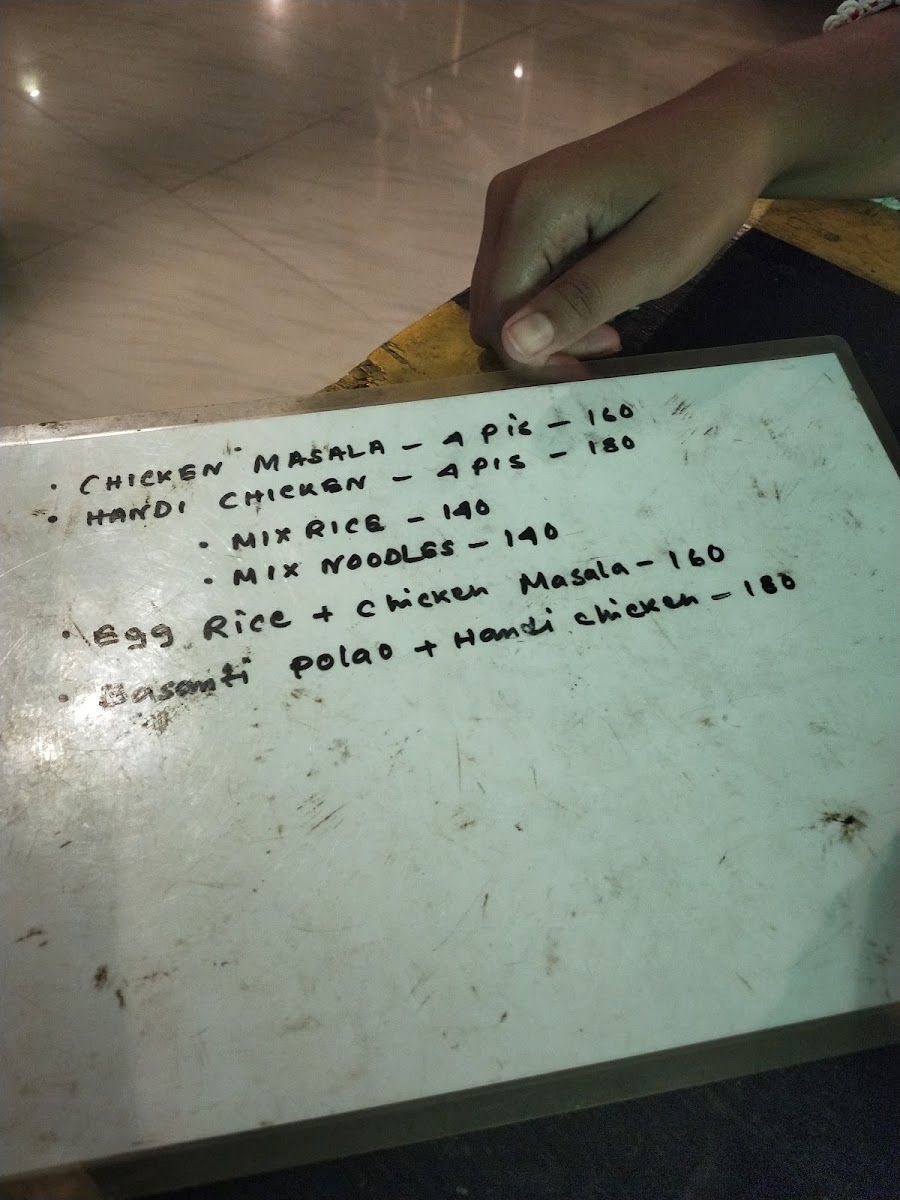 · CHICKEN MASALA - 4 PIC - 160
· HANDI CHICKEN - 4 PIS - 180
· MIX RICE - 140
· MIX NOODLES - 140
· Egg Rice + Chicken Masala - 160
· Basanti Polao + Handi chicken - 180